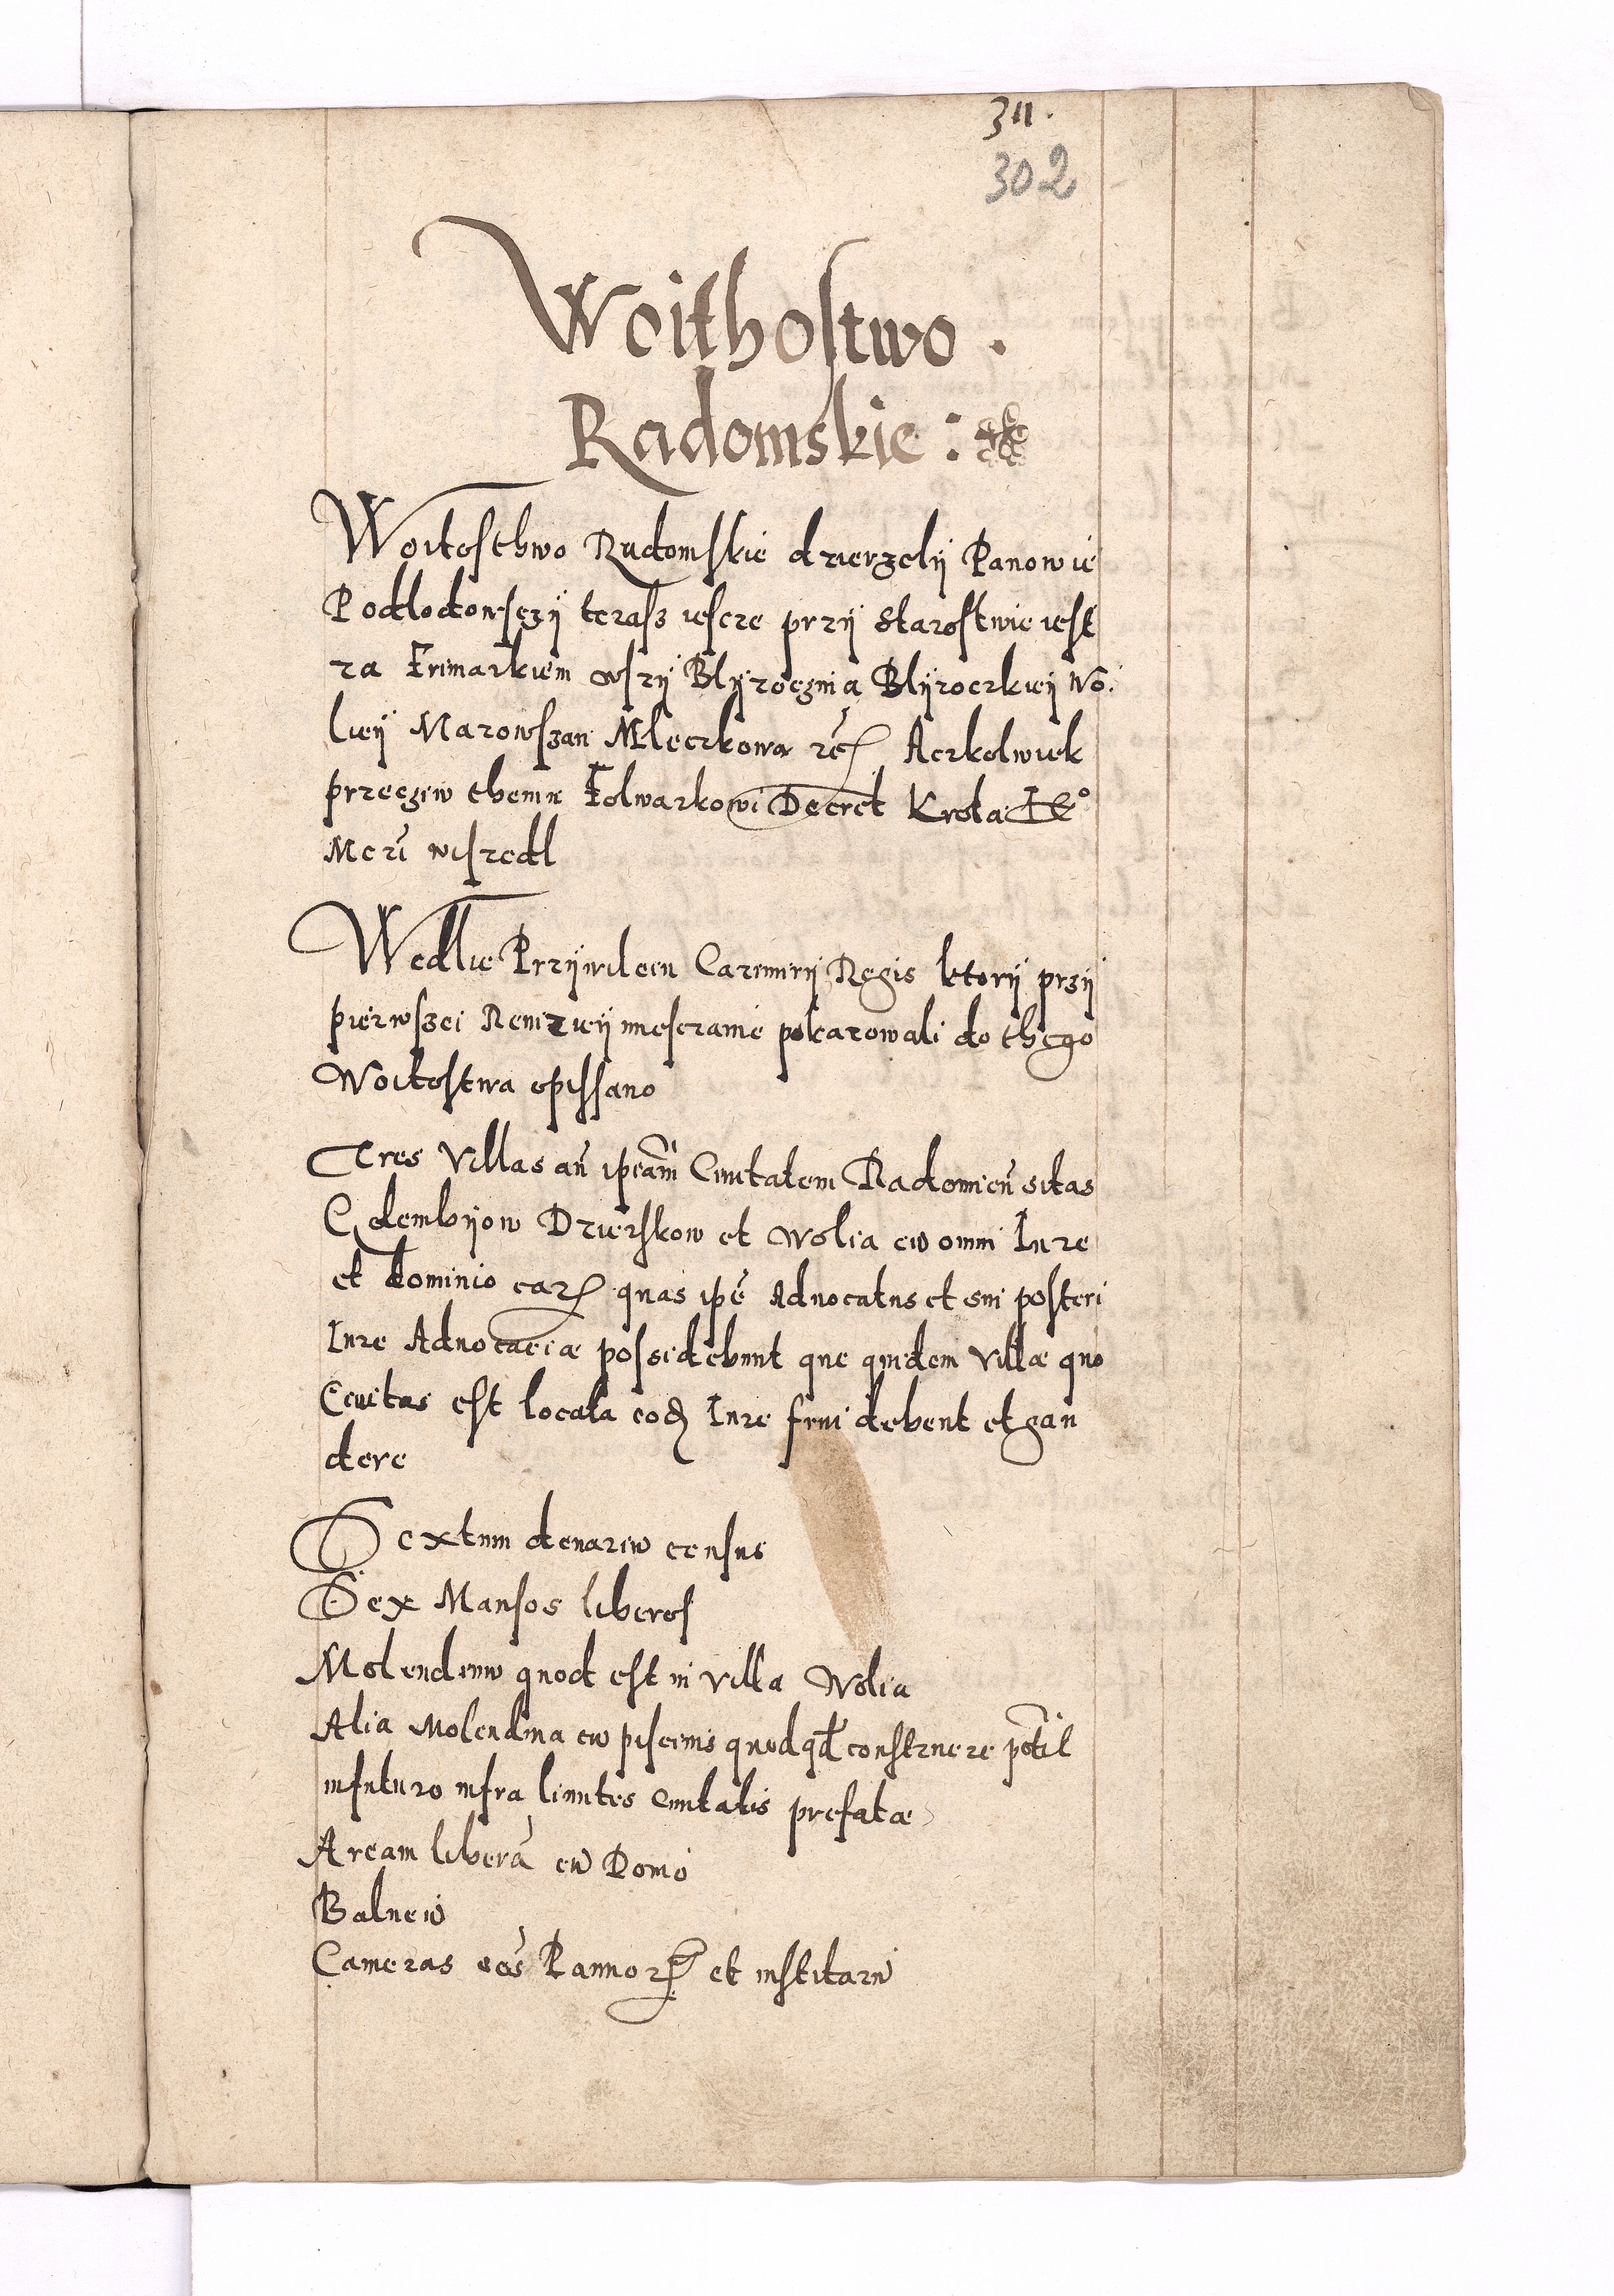 311.
302
Woithostwo.
Radomskie:
Woitosthwo Radomskie dzierzelÿ Panowie
Podlodowsczÿ terasz iescze przÿ Starostwie iest
za Frimarkiem wszÿ Blÿzoczmia Blÿzoczkieÿ Wo.
lieÿ Marowszan Mleczkowa rcz Aczkolwiek
przecziw themu Folwarkowi Decret Krola Ie°
Mczi wiszedl
Wedlie Przÿwileiu Cazimirÿ Regis ktorÿ przÿ
pierwszei Rewizieÿ miesczanie pokazowali do thego
Woitostwa opissano
Tres Villas añ ip̃am Ciuitatem Radomieñ sitas
Golembÿow Dzierskow et Wolia cũ omni Iure
et dominio earꝝ quas ip̃e Aduocatus et sui posteri
Iure Aduocaciæ possidebunt que quidem Villæ quo
Ciuitas est locata eod Iure frui debent et gau
dere
Sextum denariũ census
Sex Mansos liberos
Molendinũ quod est in villa Wolia
Alia Molendina cũ piscinis quodqd construere potit
infuturo infra limites Ciuitatis prefatæ
Aream liberã cũ Domo
Balneũ
Cameras oẽs Pannorꝝ et institarũ